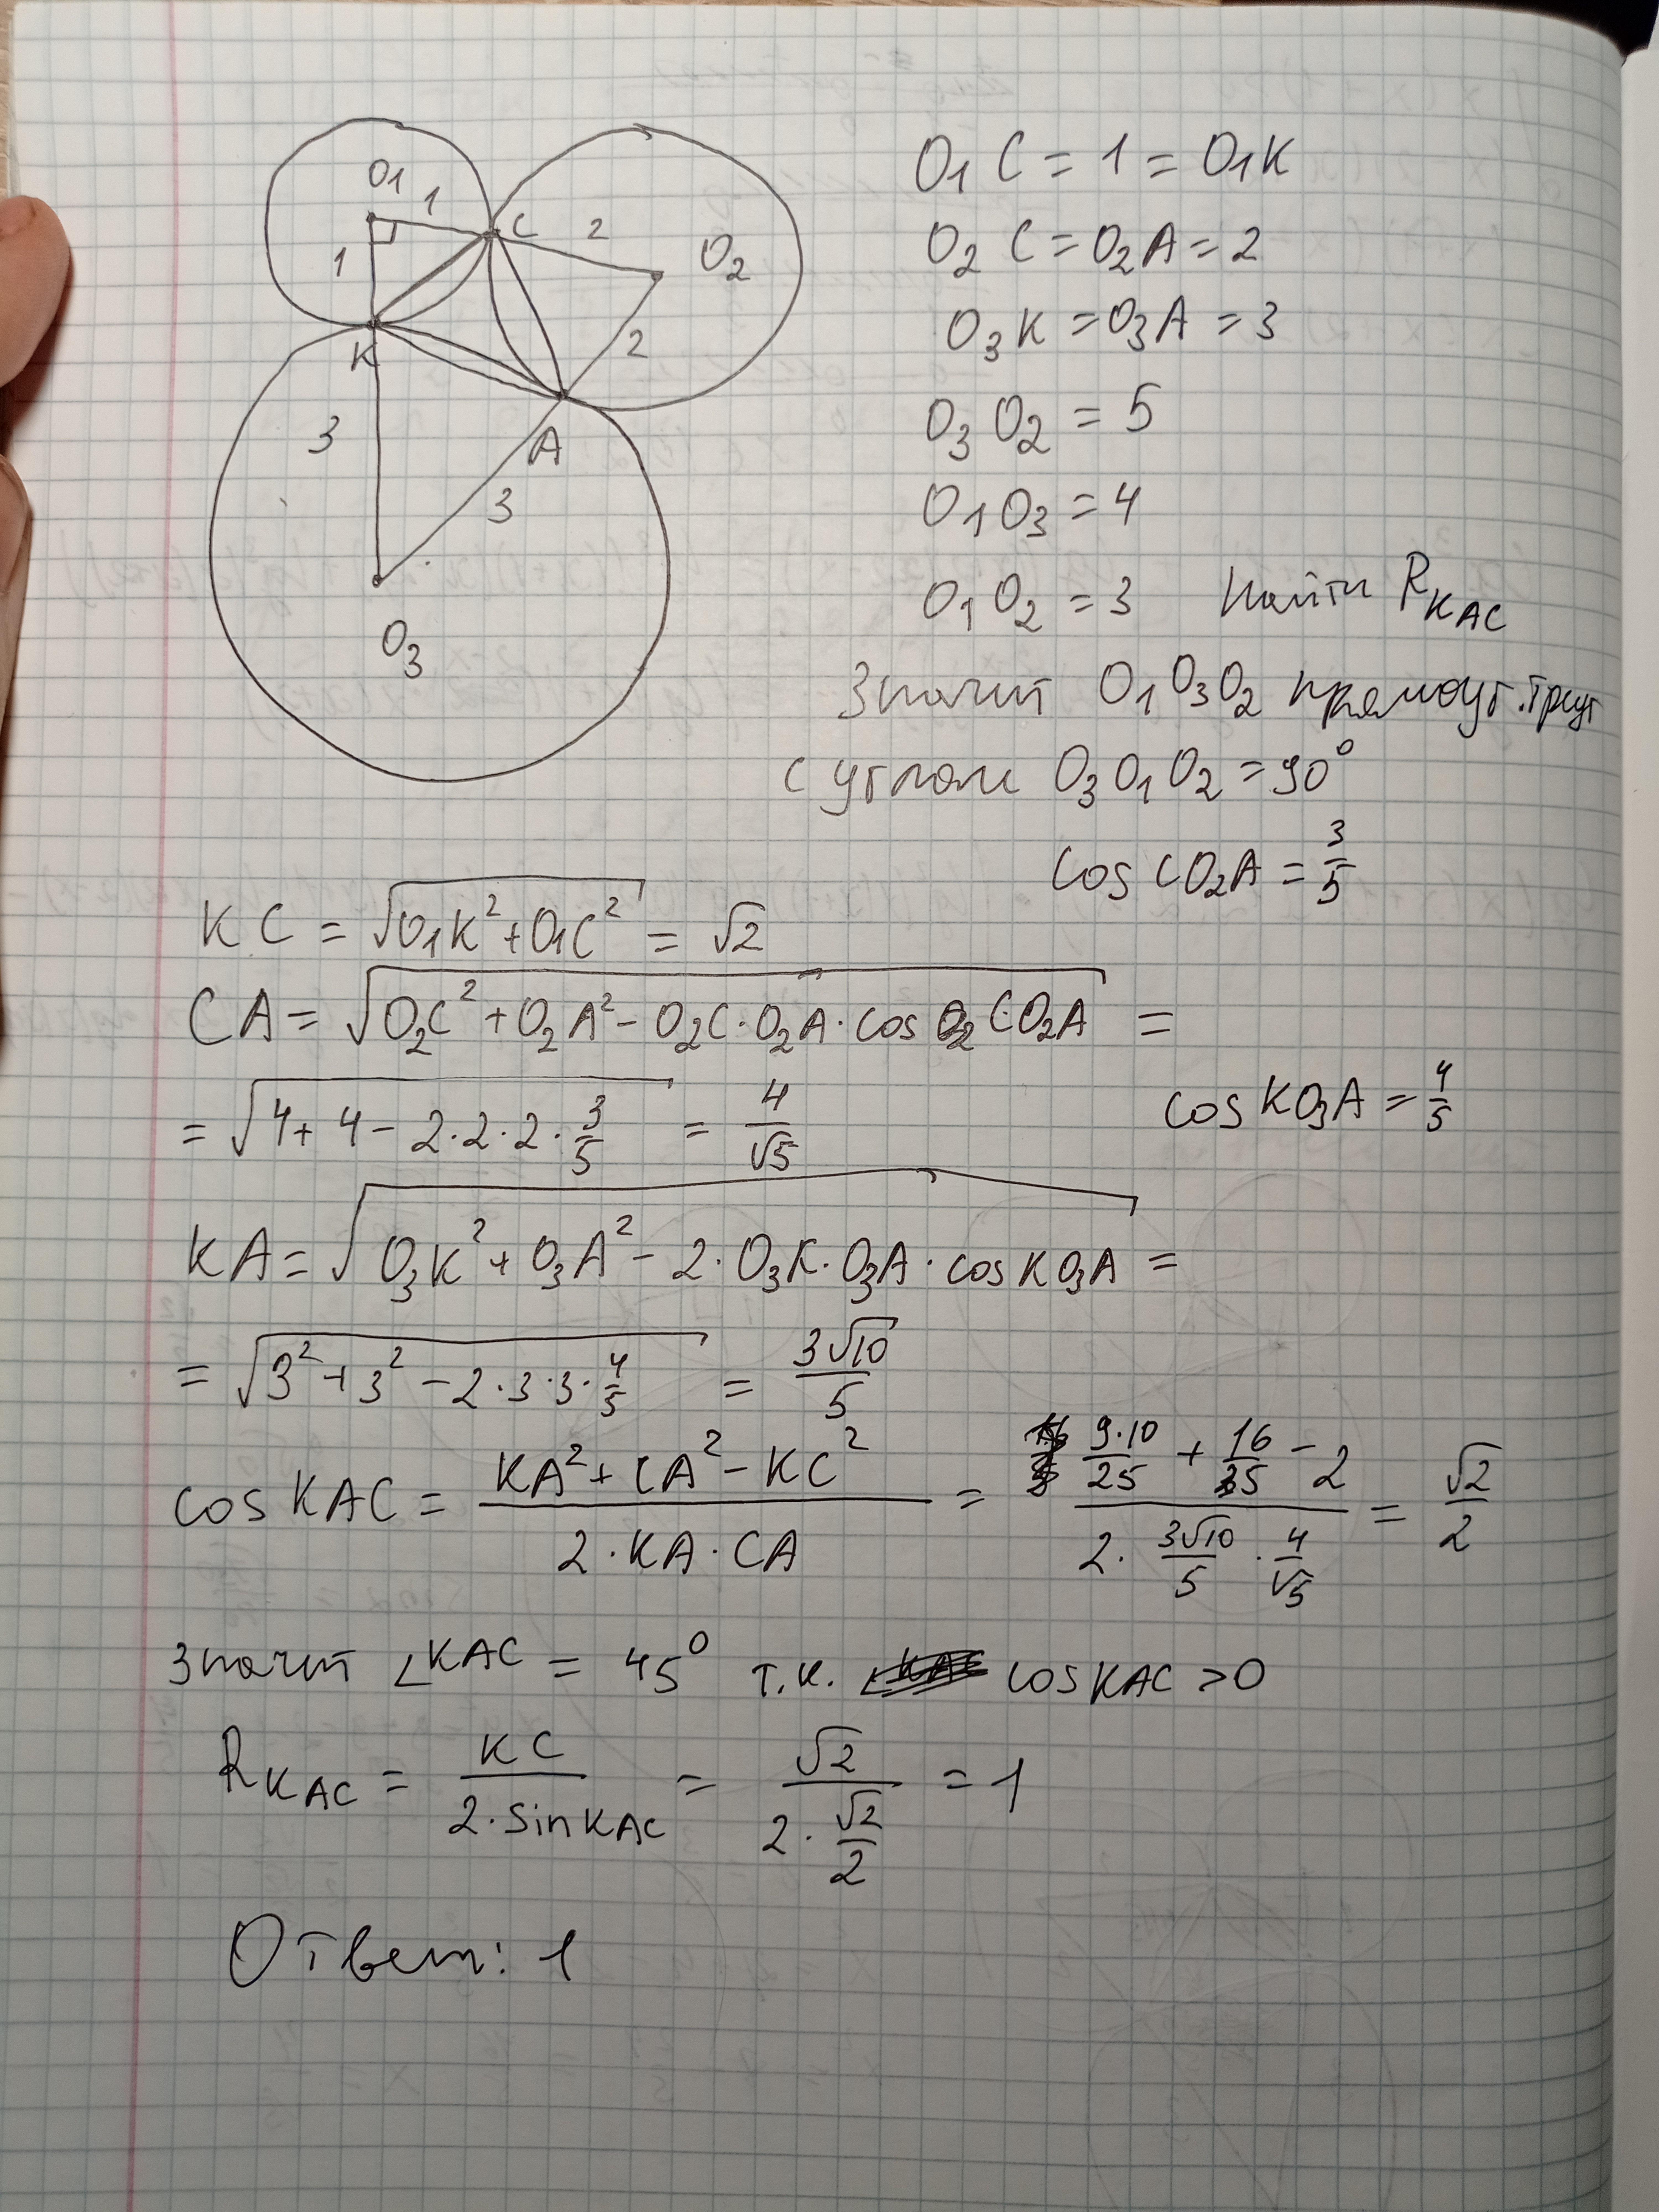 O1
1
C
2
O2
1
K
2
3
A
3
O3
O1 C = 1 = O1K
O2 C = O2A = 2
O3K = O3A = 3
O3 O2 = 5
O1 O3 = 4
O1 O2 = 3 Найти R_KAC
Значит O1O3O2 прямоуг. треуг
с углом O3O1O2 = 90°
cos CO2A = 3/5
KC = √(O1K² + O1C²) = √2
CA = √(O2C² + O2A² - O2C · O2A · cos CO2A) =
= √(4 + 4 - 2·2·2·3/5) = 4/√5
cos KO3A = 4/5
KA = √(O3K² + O3A² - 2·O3K·O3A·cos KO3A) =
= √(3² + 3² - 2·3·3·4/5) = 3√10/5
cos KAC = (KA² + CA² - KC²)/(2·KA·CA) = (9·10/25 + 16/5 - 2)/(2·3√10/5·4/√5) = √2/2
Значит ∠KAC = 45° т.к. cos KAC > 0
R_KAC = KC/(2·sin KAC) = √2/(2·√2/2) = 1
Ответ: 1